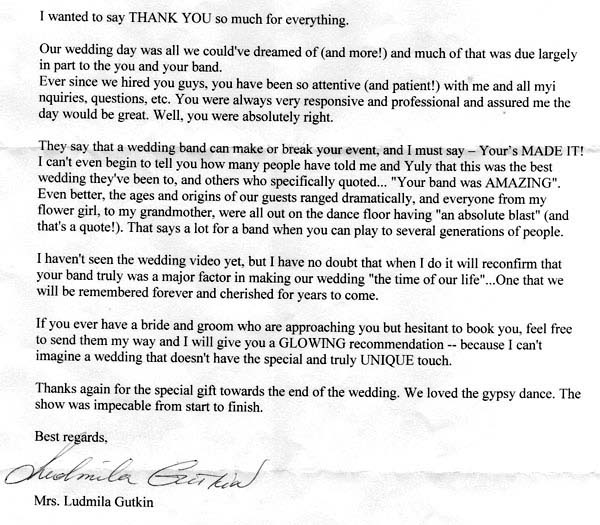 I wanted to say THANK YOU so much for everything.
Our wedding day was all we could've dreamed of (and more!) and much of that was due largely
in part to the you and your band.
Ever since we hired you guys, you have been so attentive (and patient!) with me and all myi
nquiries, questions, etc. You were always very responsive and professional and assured me the
day would be great. Well, you were absolutely right.
They say that a wedding band can make or break your event, and I must say – Your's MADE IT!
I can't even begin to tell you how many people have told me and Yuly that this was the best
wedding they've been to, and others who specifically quoted... "Your band was AMAZING".
Even better, the ages and origins of our guests ranged dramatically, and everyone from my
flower girl, to my grandmother, were all out on the dance floor having "an absolute blast" (and
that's a quote!). That says a lot for a band when you can play to several generations of people.
I haven't seen the wedding video yet, but I have no doubt that when I do it will reconfirm that
your band truly was a major factor in making our wedding "the time of our life"...One that we
will be remembered forever and cherished for years to come.
If you ever have a bride and groom who are approaching you but hesitant to book you, feel free
to send them my way and I will give you a GLOWING recommendation -- because I can't
imagine a wedding that doesn't have the special and truly UNIQUE touch.
Thanks again for the special gift towards the end of the wedding. We loved the gypsy dance. The
show was impecable from start to finish.
Best regards,
Ludmila Gutkin
Mrs. Ludmila Gutkin